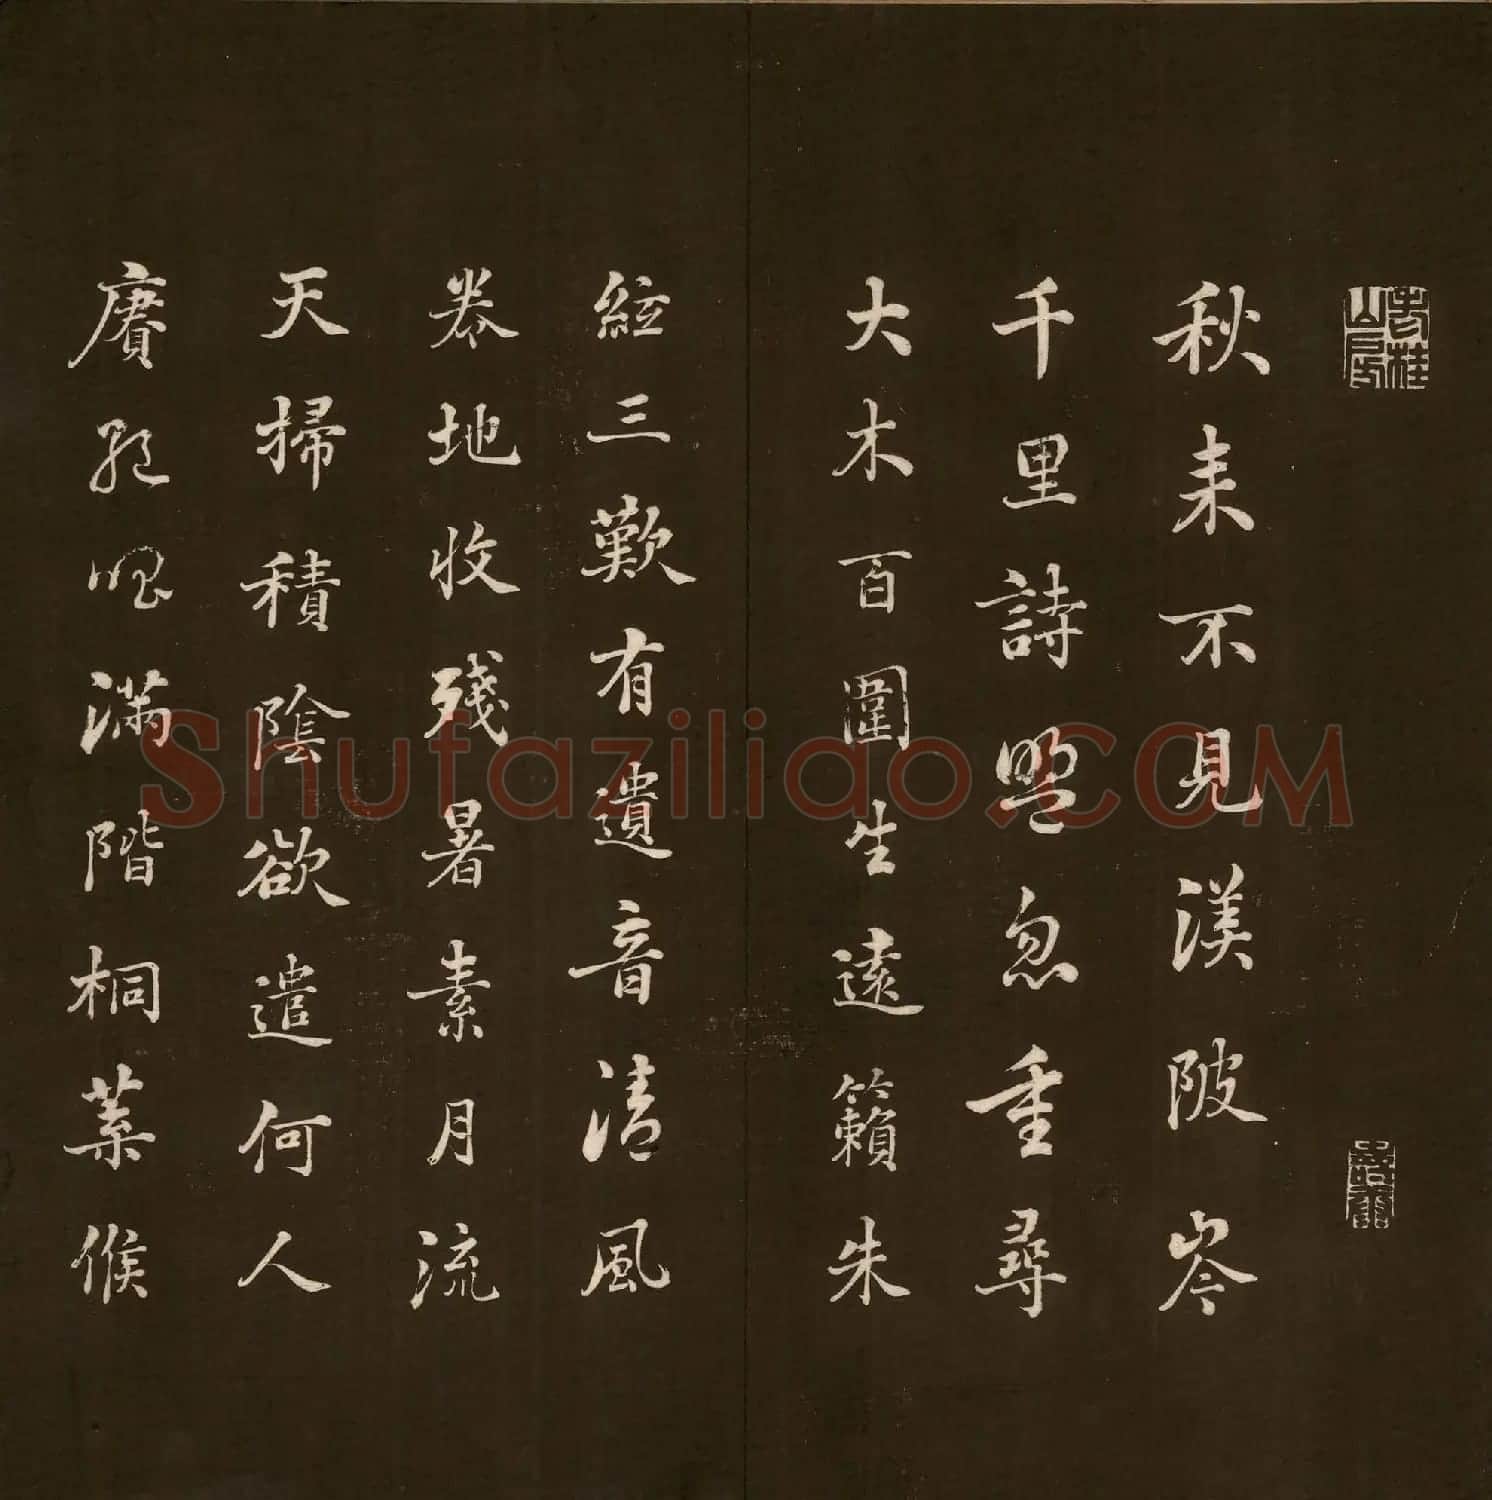 秋来不見渼陂岑
千里詩盟忽重尋
大木百圍生遠籟朱
絃三歎有遺音清風
卷地收殘暑素月流
天掃積陰欲遣何人
賡絕唱滿階桐葉候
Shufaziliao.COM